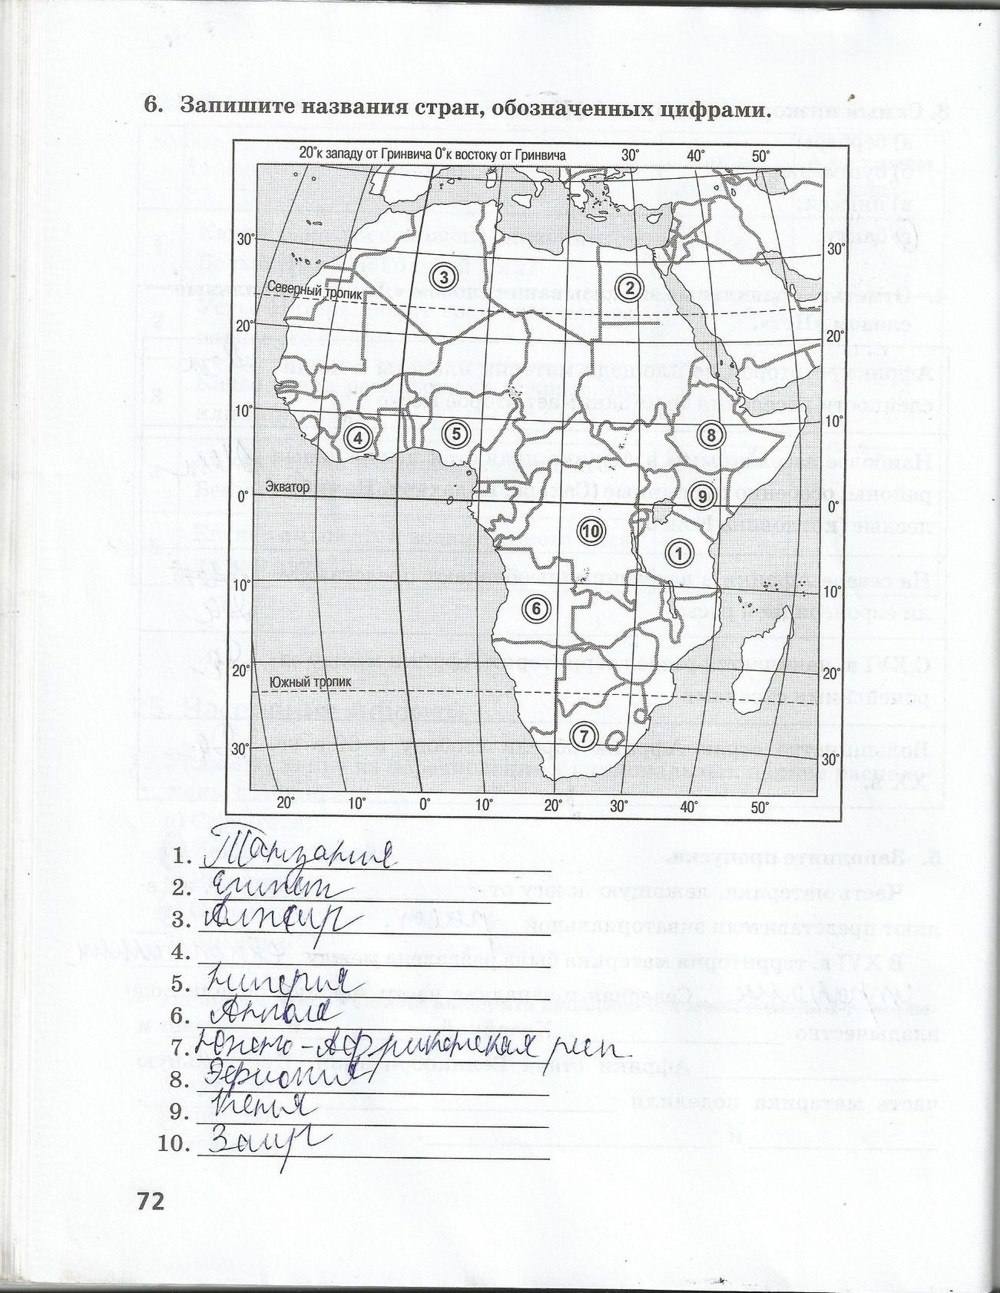 6. Запишите названия стран, обозначенных цифрами.
20° к западу от Гринвича 0° к востоку от Гринвича 30° 40° 50°
30° 30°
3 2
Северный тропик
20° 20°
10° 10°
4 5 8
Экватор
0° 0°
9
10
1
10° 10°
6
20° 20°
Южный тропик
7
30° 30°
20° 10° 0° 10° 20° 30° 40° 50°
1. Танзания
2. Египет
3. Алжир
4.
5. Нигерия
6. Ангола
7. Южно-Африканская респ.
8. Эфиопия
9. Кения
10. Заир
72